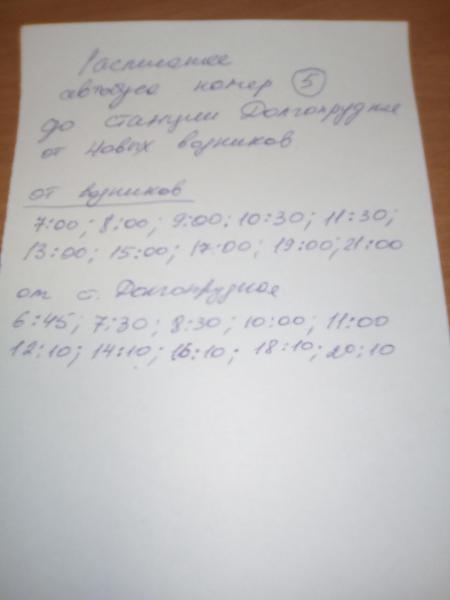 Расписание
автобуса номер 5
до станции Долгопрудная
от Новых водников
от водников
7:00; 8:00; 9:00; 10:30; 11:30;
13:00; 15:00; 17:00; 19:00; 21:00
от ст. Долгопрудное
6:45; 7:30; 8:30; 10:00; 11:00
12:10; 14:10; 16:10; 18:10; 20:10